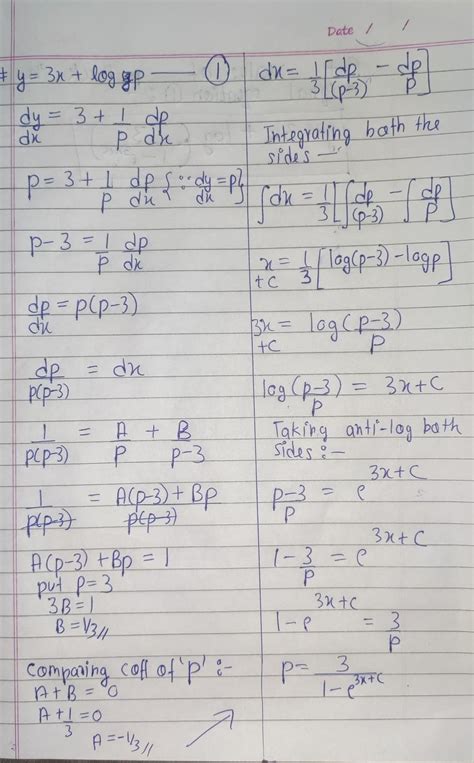 Date / /
# y = 3x + log p —— ①
dy/dx = 3 + 1/p dp/dx
p = 3 + 1/p dp/dx {∵ dy/dx = p}
p-3 = 1/p dp/dx
dp/dx = p(p-3)
dp/p(p-3) = dx
1/p(p-3) = A/p + B/p-3
1/p(p-3) = A(p-3)+Bp/p(p-3)
A(p-3)+Bp = 1
put p=3
3B=1
B=1/3//
comparing coff of 'p' :-
A+B = 0
A+1/3=0
A=-1/3//
dx = 1/3[dp/(p-3) - dp/p]
Integrating both the
sides —
∫dx = 1/3[∫dp/(p-3) - ∫dp/p]
x+C = 1/3[log(p-3)-logp]
3x+C = log(p-3)/p
log(p-3)/p = 3x+C
Taking anti-log both
sides :-
p-3/p = e^3x+C
1-3/p = e^3x+C
1-e^3x+c = 3/p
p = 3/1-e^3x+c